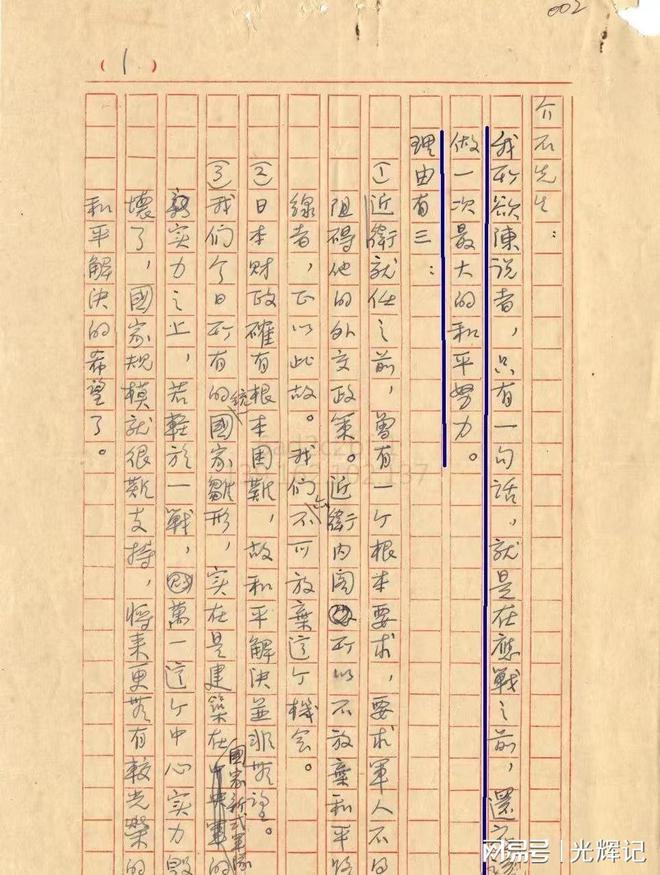 002
(1)
介石先生：
我所欲陳说者，只有一句話，就是在應戰之前，還
做一次最大的和平努力。
理由有三：
①近衛就任之前，曾有一个根本要求，要求軍人不
阻碍他的外交政策。近衛内阁所以不放棄和平
線者，正以此故。我们不可放棄这个機会。
②日本财政確有根本困難，故和平解決並非無望。
③我们今日所有的統國家雛形，实在是建築在國家新式軍隊的
实力之上，若輕於一戰，萬一这个中心实力毁
壞了，國家规模就很難支持，將来更無有較光榮的
和平解決的希望了。
网易号 | 光辉记